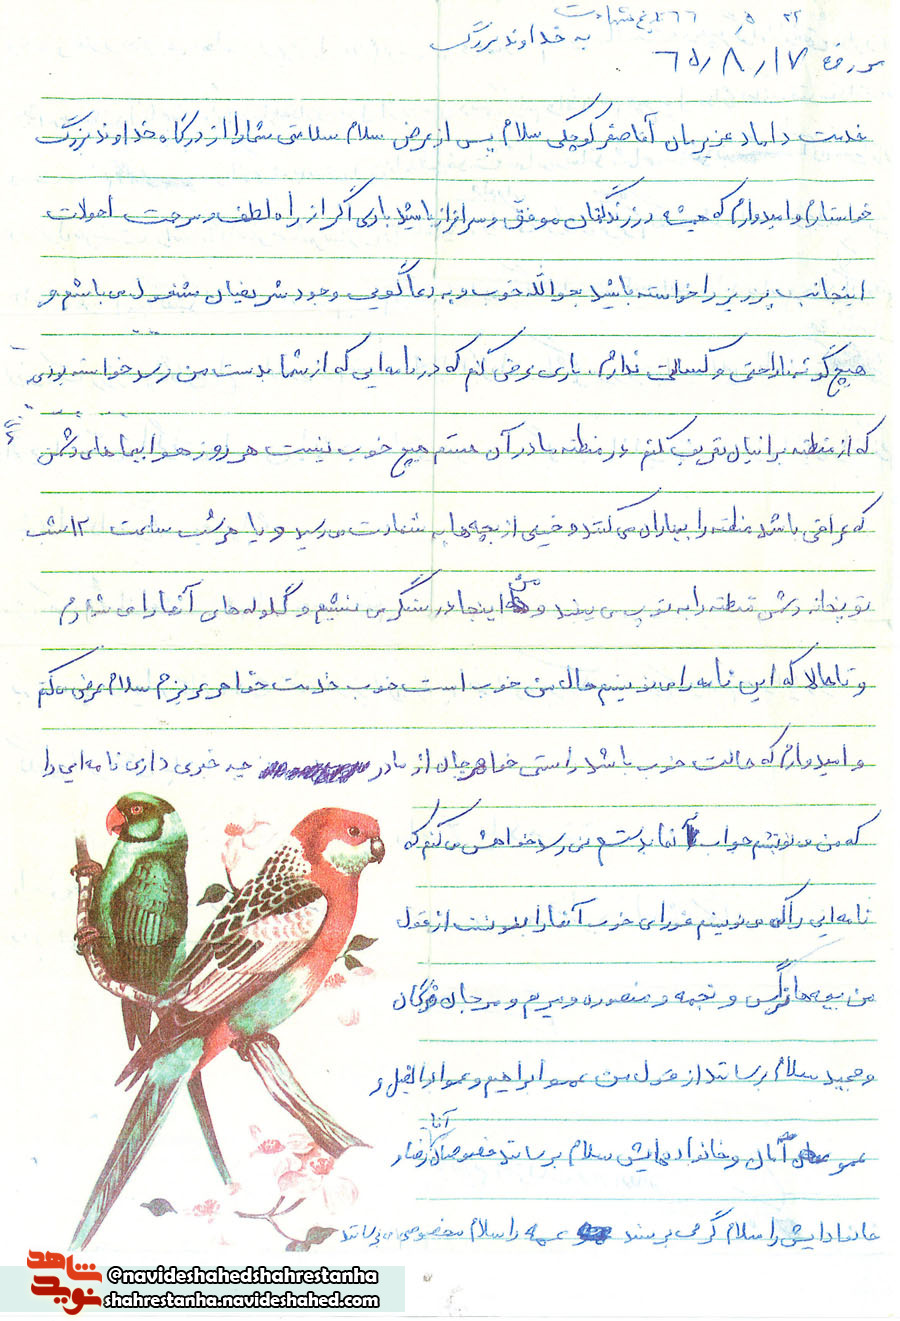 به خداوند بزرگ
مورخه ۶۵/۸/۱۷
خدمت داماد عزیزمان آقا صفر کوچکی سلام پس از عرض سلام سلامتی شما را از درگاه خداوند بزرگ
خواستارم و امیدوارم که همیشه در زندگیتان موفق و سرافراز باشید باری اگر از راه لطف و مرحمت احوالات
اینجانب پرویز را خواسته باشید بحوالله خوب و به دعاگویی وجود شریفتان مشغول می باشم و
هیچ گونه ناراحتی و کسالتی ندارم. باری عرض کنم که در نامه ایی که از شما بدست من رسد خواسته بودی
که از منطقه برایتان تعریف کنم در منطقه ما در آن هستم هیچ خوب نیست هر روز هواپیماهای دشمن
که عراقی باشد منطقه را بمباران می کنند و خیلی از بچه ها به شهادت می رسید و یا هر شب ساعت ۱۲ شب
توپخانه دشمن منطقه را به توپ می بندد و من اینجا در سنگر می نشینم و گلوله های آنها را می شمارم
و تا حالا که این نامه را می نویسم حال من خوب است خوب خدمت خواهر عزیزم سلام عرض می کنم
و امیدوارم که حالت خوب باشد راستی خواهر جان از مادر چه خبری داری نامه ایی را
که من می نویسم جواب آنها بدستم نمی رسد خواهش می کنم که
نامه ایی را که می نویسم فورای خوب آنها را بفرست از قول
من بچه ها نرگس و نجمه و منصوره و مریم و مرجان
و مجید سلام برسانید از قول من عمو ابراهیم و عمو ابوالفضل و
عمو امان و خانواده هایش سلام برسانید مخصوصا آقا رضا و
خانواده ایش را سلام گرمی برسند همه را سلام مخصوصی می رسانند
شاهد
نوید
@navideshahedshahrestanha
shahrestanha.navideshahed.com